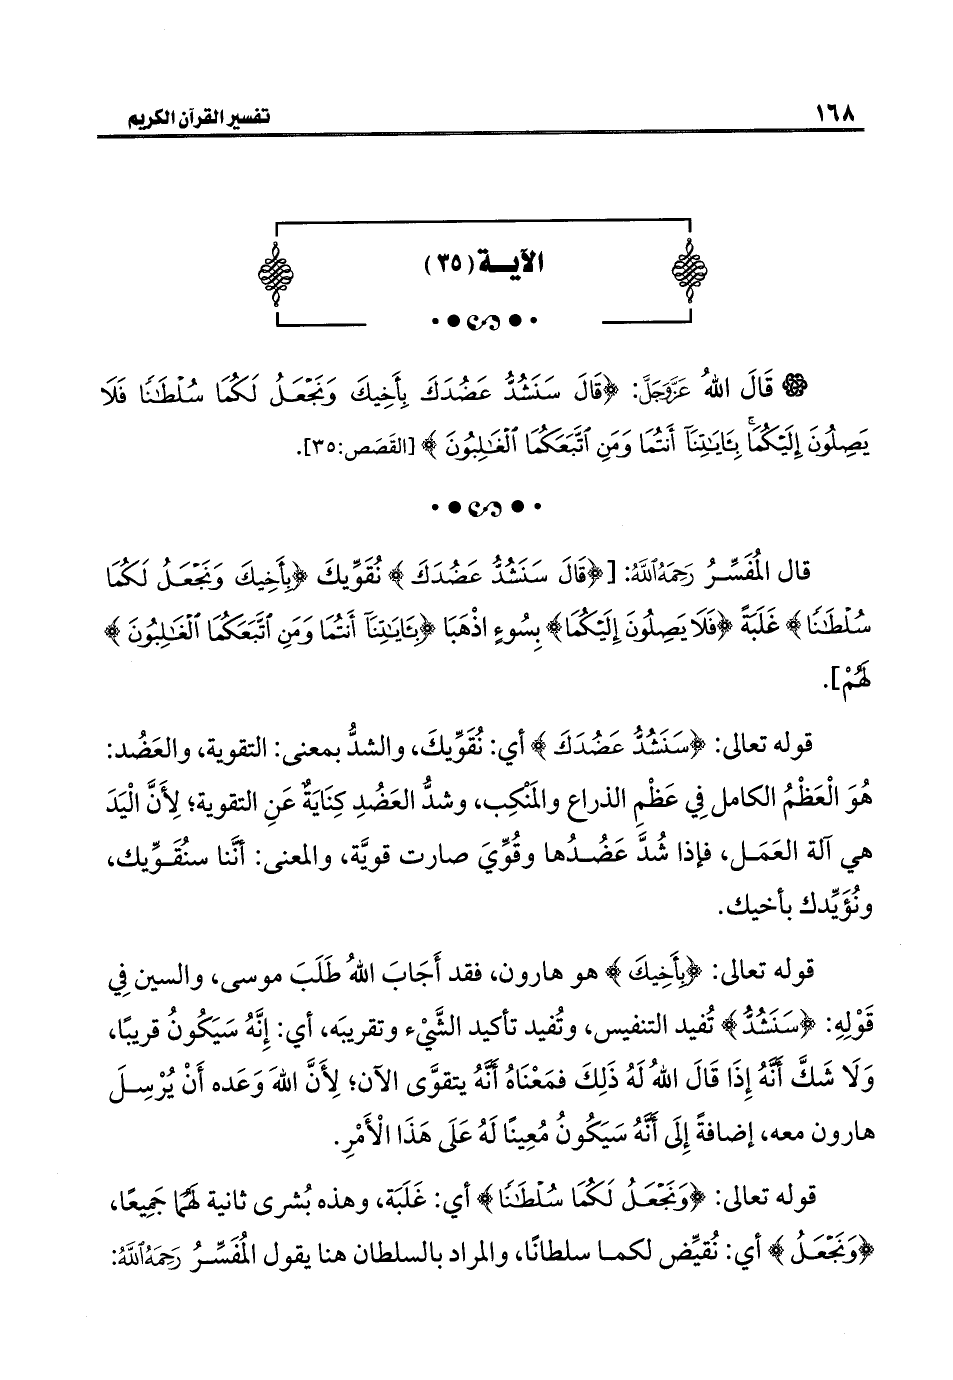 ١٦٨
تفسير القرآن الكريم
الآيـــة (٣٥)
قَالَ اللهُ عَزَّوَجَلَّ: ﴿قَالَ سَنَشُدُّ عَضُدَكَ بِأَخِيكَ وَنَجْعَلُ لَكُمَا سُلْطَٰنًا فَلَا
يَصِلُونَ إِلَيْكُمَا ۚ بِـَٔايَٰتِنَآ أَنتُمَا وَمَنِ ٱتَّبَعَكُمَا ٱلْغَٰلِبُونَ﴾ [القَصَص:٣٥].
قال المُفَسِّرُ رَحِمَهُ اللَّهُ: [﴿قَالَ سَنَشُدُّ عَضُدَكَ﴾ نُقَوِّيك ﴿بِأَخِيكَ وَنَجْعَلُ لَكُمَا
سُلْطَٰنًا﴾ غَلَبَةً ﴿فَلَا يَصِلُونَ إِلَيْكُمَا﴾ بِسُوءٍ اذْهَبَا ﴿بِـَٔايَٰتِنَآ أَنتُمَا وَمَنِ ٱتَّبَعَكُمَا ٱلْغَٰلِبُونَ﴾
لَهُمْ].
قوله تعالى: ﴿سَنَشُدُّ عَضُدَكَ﴾ أي: نُقَوِّيكَ، والشدُّ بمعنى: التقوية، والعَضُد:
هُوَ الْعَظْمُ الكامل فِي عَظْمِ الذراع والمَنْكِب، وشدُّ العَضُدِ كِنَايَةٌ عَنِ التقوية؛ لِأَنَّ الْيَدَ
هي آلة العَمَل، فإذا شُدَّ عَضُدُها وقُوِّيَ صارت قويَّة، والمعنى: أنَّنا سنُقَوِّيك،
ونُؤَيِّدك بأخيك.
قوله تعالى: ﴿بِأَخِيكَ﴾ هو هارون، فقد أَجَابَ اللهُ طَلَبَ موسى، والسين فِي
قَوْلِهِ: ﴿سَنَشُدُّ﴾ تُفيد التنفيس، وتُفيد تأكيد الشَّيْء وتقريبَه، أي: إِنَّهُ سَيَكُونُ قريبًا،
وَلَا شَكَّ أَنَّهُ إِذَا قَالَ اللهُ لَهُ ذَلِكَ فمَعْنَاهُ أَنَّهُ يتقوَّى الآن؛ لِأَنَّ اللهَ وَعَده أَنْ يُرْسِلَ
هارون معه، إضافةً إِلَى أَنَّهُ سَيَكُونُ مُعِينًا لَهُ عَلَى هَذَا الْأَمْرِ.
قوله تعالى: ﴿وَنَجْعَلُ لَكُمَا سُلْطَٰنًا﴾ أي: غَلَبَة، وهذه بُشرى ثانية لَهُمَا جَمِيعًا،
﴿وَنَجْعَلُ﴾ أي: نُقيِّض لكما سلطانًا، والمراد بالسلطان هنا يقول المُفَسِّرُ رَحِمَهُ اللَّهُ: